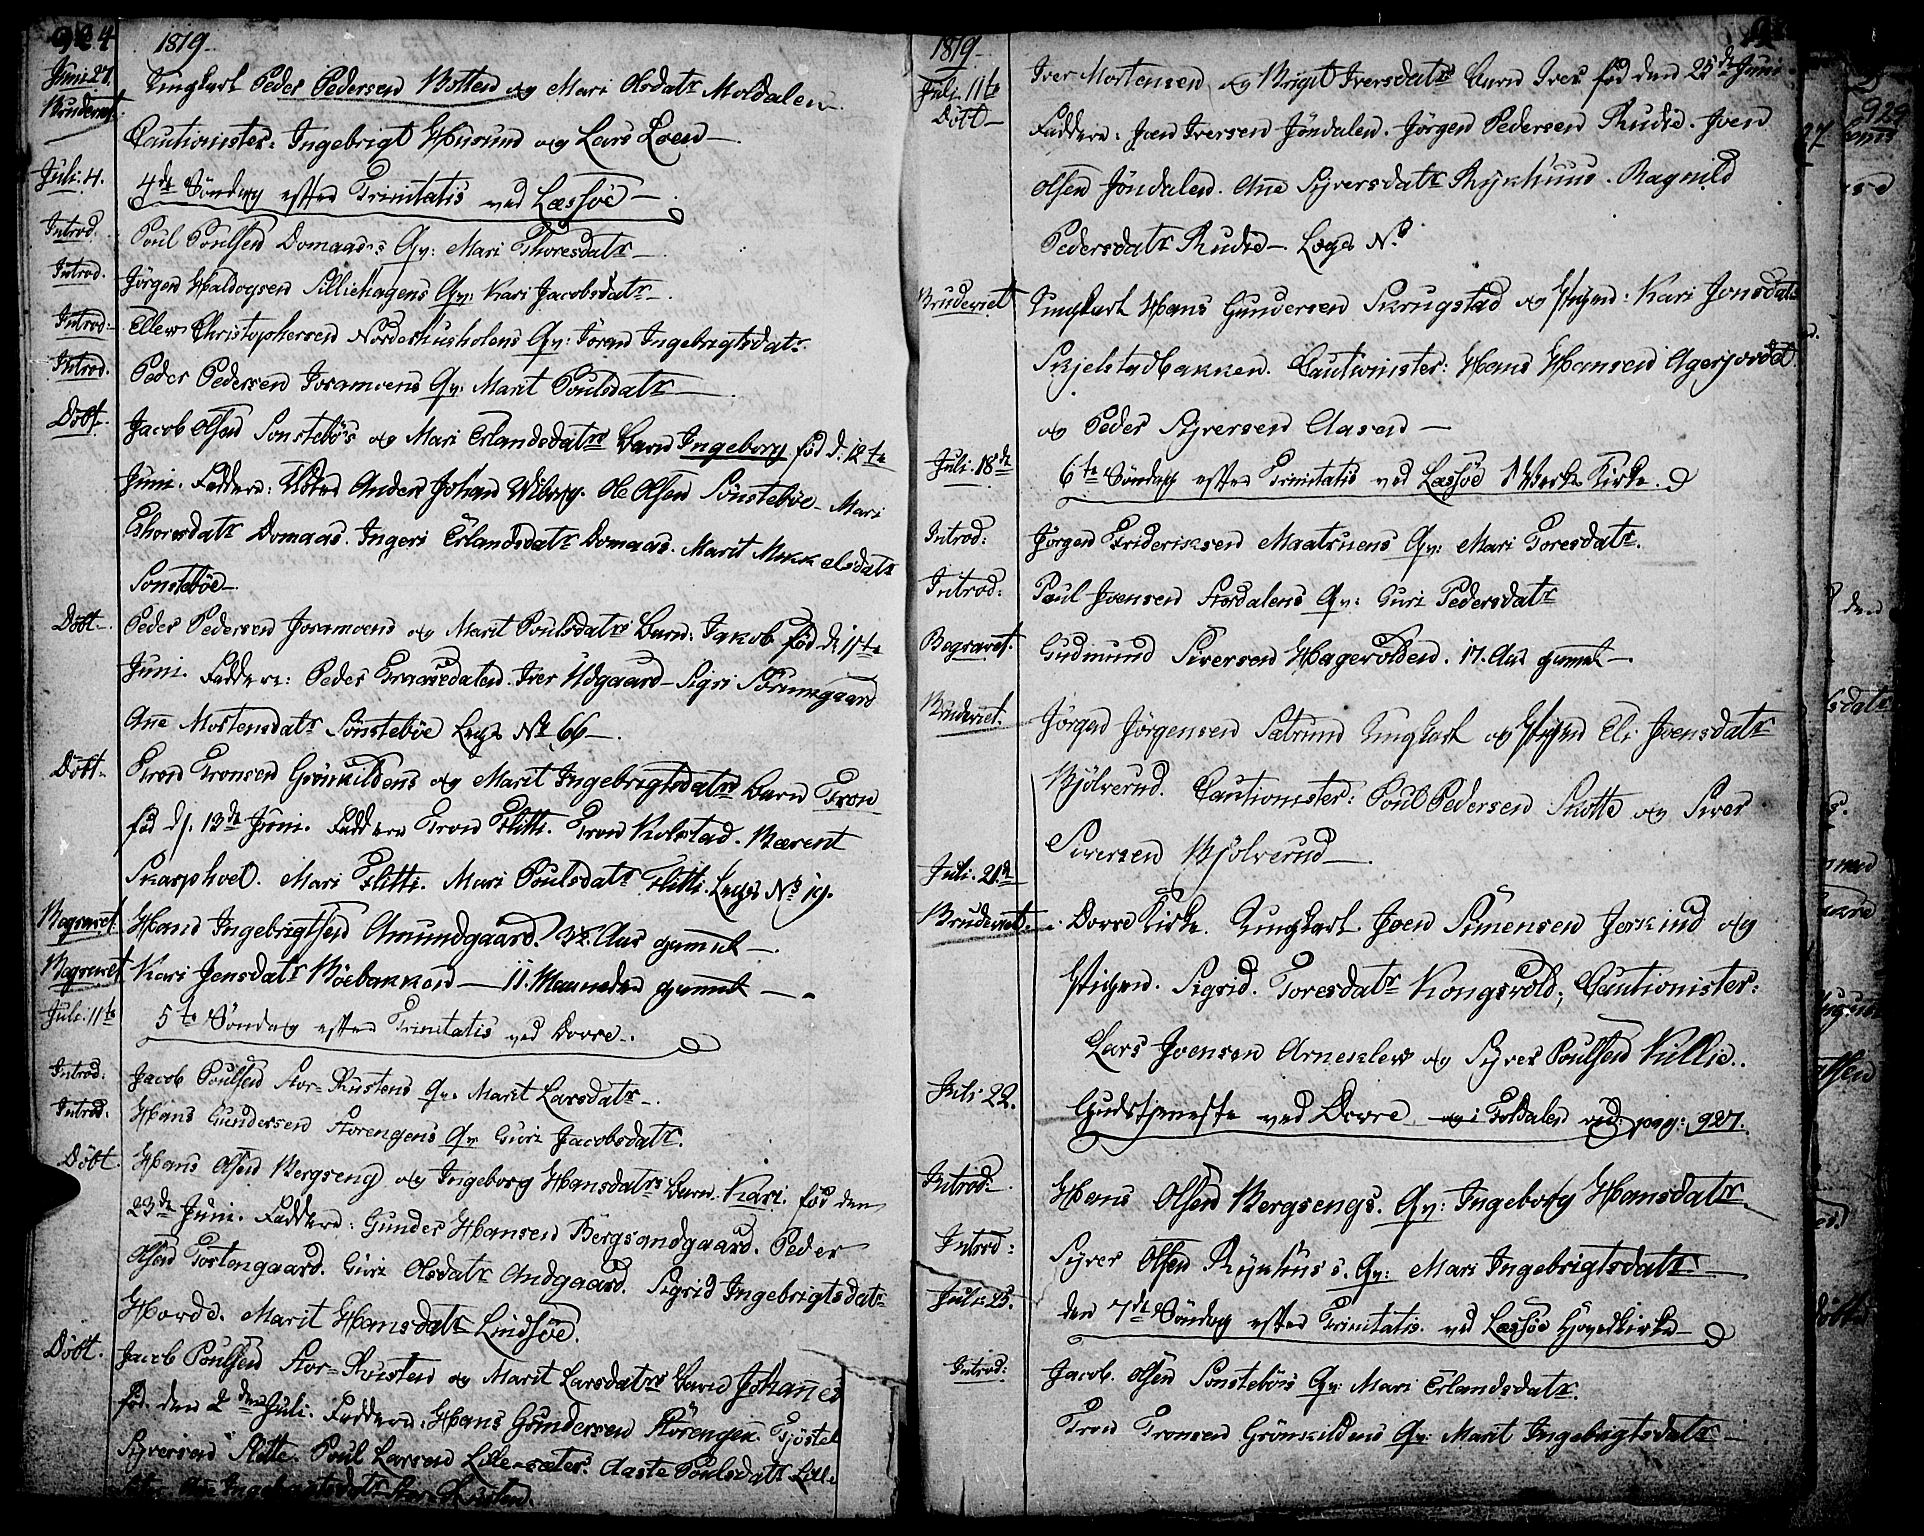 924
1819.
Juni 27. Ungkarl Peder Pedersen Botten og Mari Olsdatr Moldalen
Brudeviet. Cautionister: Ingebrigt Husrund og Lars Loen
Juli 4. 4de Søndag efter Trinitatis ved Læssøe
Introd. Poul Poulsen Domaas's Qv: Mari Thoresdatr
Introd. Jørgen Haldogsen Silliehagens Qv: Kari Jacobsdatr
Introd: Ellew Christophersen Nordeshusholens Qv: Joran Ingebrigtsdatr.
Introd. Peder Pedersen Joramoens Qv: Marit Poulsdatr
Døbt. Jacob Olsen Sønstebøs og Mari Erlandsdatrs barn Ingeborg fød d. 12te
Juni. Faddere: Anders Johan Wiberg. Ole Olsen Sønstebøe. Mari
Thoresdatr Domaas. Ingeri Erlandsdatr Domaas. Marit Mikkelsdatr
Sønstebøe
Døbt. Peder Pedersen Joramoens og Marit Poulsdatrs barn: Jakob fød d: 15te
Juni. Faddere: Peder Iver Udgaard. Sigri
Ane Mortensdatr Sønstebøe Lægs No 66
Døbt. Tron Tronsen Grønkildens og Marit Ingebrigtsdatrs barn Tron
fød d. 13de Juni. Faddere Tron Flitti. Tron Kolstad. Bærent
Skarphoel. Mari Flitti. Mari Poulsdatr Flitti. Lægs No 19.
Begravet. Hans Ingebrigtsen Amundgaard. Aar gammel
Begravet. Kari Jensdatr Bøebakken 11. Maaneder gammel
Juli: 11te 5te Søndag efter Trinitatis ved Dovre.
Introd: Jacob Poulsen Stor-Rustens Qv. Marit Larsdatr.
Introd: Hans Gundersen Storengens Qv Guri Jacobsdatr.
Døbt. Hans Olsen Bergseng og Ingeborg Hansdatrs barn. Kari. fød den
23de Juni. Faddere: Gunder Hansen Bergsandgaard. Peder
Olsen Toftengaard. Guri Olsdatr Andgaard. Sigrid Ingebrigtsdatr
Horde. Marit Hansdatr Lindsøe.
Døbt. Jacob Poulsen Stor-Rusten og Marit Larsdatrs barn Johanes
fød. den 2den Juli. Faddere: Hans Gundersen Storengen. Tjøstel
Siversen Slette. Poul Larsen Lille-sæter. Aaste Poulsdatr Lille
sæter. Ane Ingebrigtsdatr Stor-Rusten.
1819.
Juli 11te Iver Mortensen og Brigit Iversdatrs barn Iver fød den 25de Juni
Døbt Faddere: Joen Iversen Jøndalen. Jørgen Pedersen Rudie. Joen
Olsen Jøndalen. Ane Siversdatr Rykhuus. Ragnild
Pedersdatr Rudie Lægs No
Brudeviet Ungkarl Hans Gundersen Skrugstad og Pigen: Kari Jonsdatr
Skjelstadbakken. Cautionister: Hans Hansen Agerjordet
og Peder Siversen Aasen
Juli: 18de 6te Søndag efter Trinitatis ved Læssøe Værks Kirke.
Introd: Jørgen Frideriksen Maatruens Qv: Mari Toresdatr.
Introd: Poul Joensen Stordalens Qv: Guri Pedersdatr
Begravet. Gudmund Siversen Hagevolden. 17. Aar gammel
Brudeviet. Jørgen Jørgensen Sætrund Ungkarl og Pigen Eli Joensdatr
Bjølverud. Cautionister: Poul Pedersen Skotte og Siver
Siversen Bjølverud
Juli. 21de
Brudeviet. Dovre Kirke. Ungkarl Joen Simensen Jerkind og
Pigen. Sigrid. Toresdatr Kongsvold; Cautionister:
Lars Joensen Arneklew og Siver Poulsen Killie.
Juli: 22. Gudstjeneste ved Dovre og i Foldalen vid: pag: 927.
Introd: Hans Olsen Bergsengs. Qv: Ingeborg Hansdatr
Introd: Siver Olsen Rykhus's. Qv: Mari Ingebrigtsdatr
Juli: 25. den 7de Søndag efter Trinitatis. ved Læssøe Hovedkirke
Introd: Jacob. Olsen Sønstebøes Qv: Mari Erlandsdatr.
Tron Tronsen Grønkildens Qv: Marit Ingebrigtsdatr
929